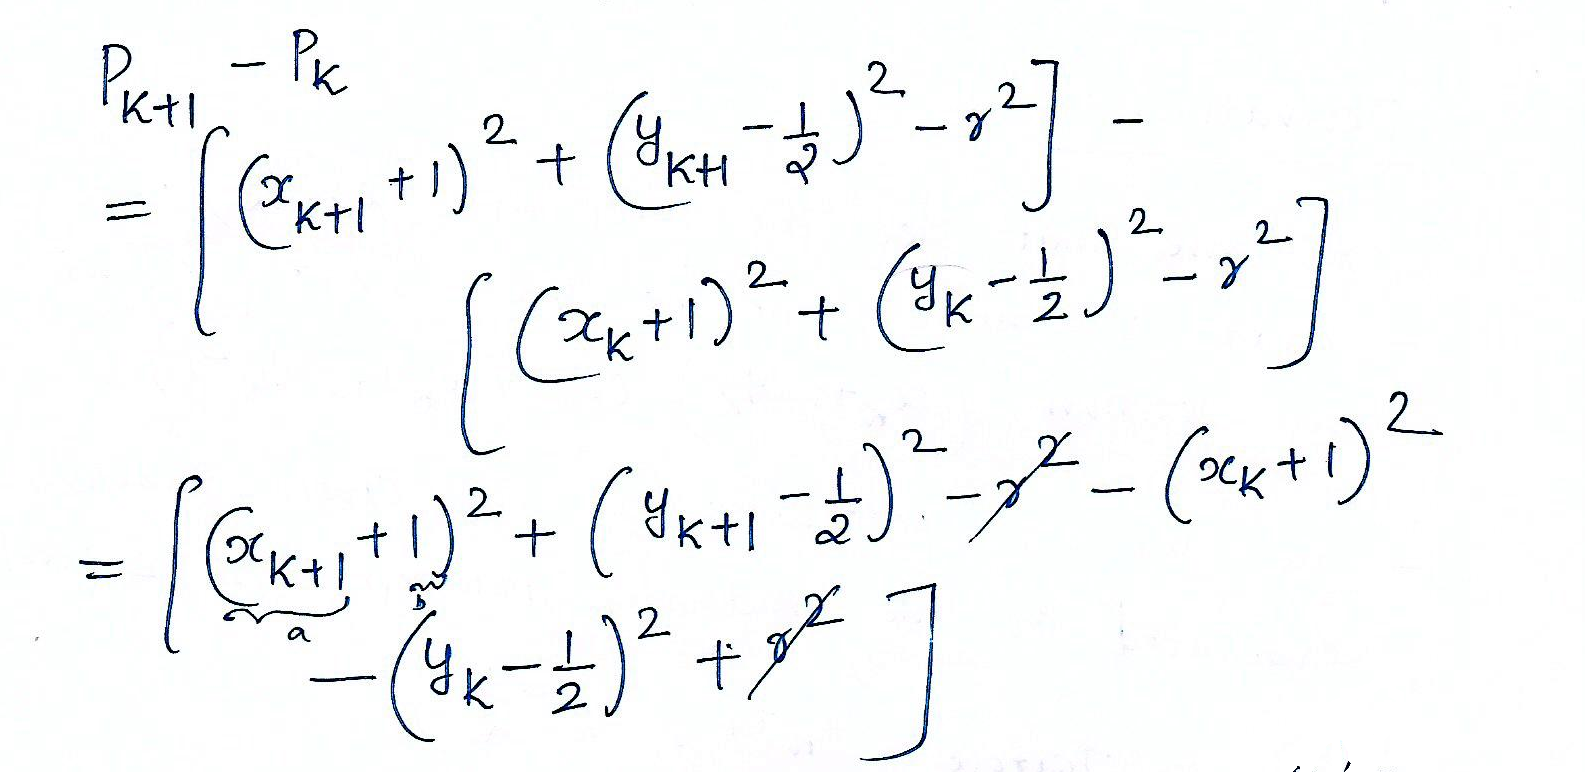 P_{K+1} - P_K
= [(x_{K+1} + 1)^2 + (y_{K+1} - 1/2)^2 - r^2] -
[(x_K + 1)^2 + (y_K - 1/2)^2 - r^2]
= [(x_{K+1} + 1)^2 + (y_{K+1} - 1/2)^2 - r^2 - (x_K + 1)^2
a b
- (y_K - 1/2)^2 + r^2]